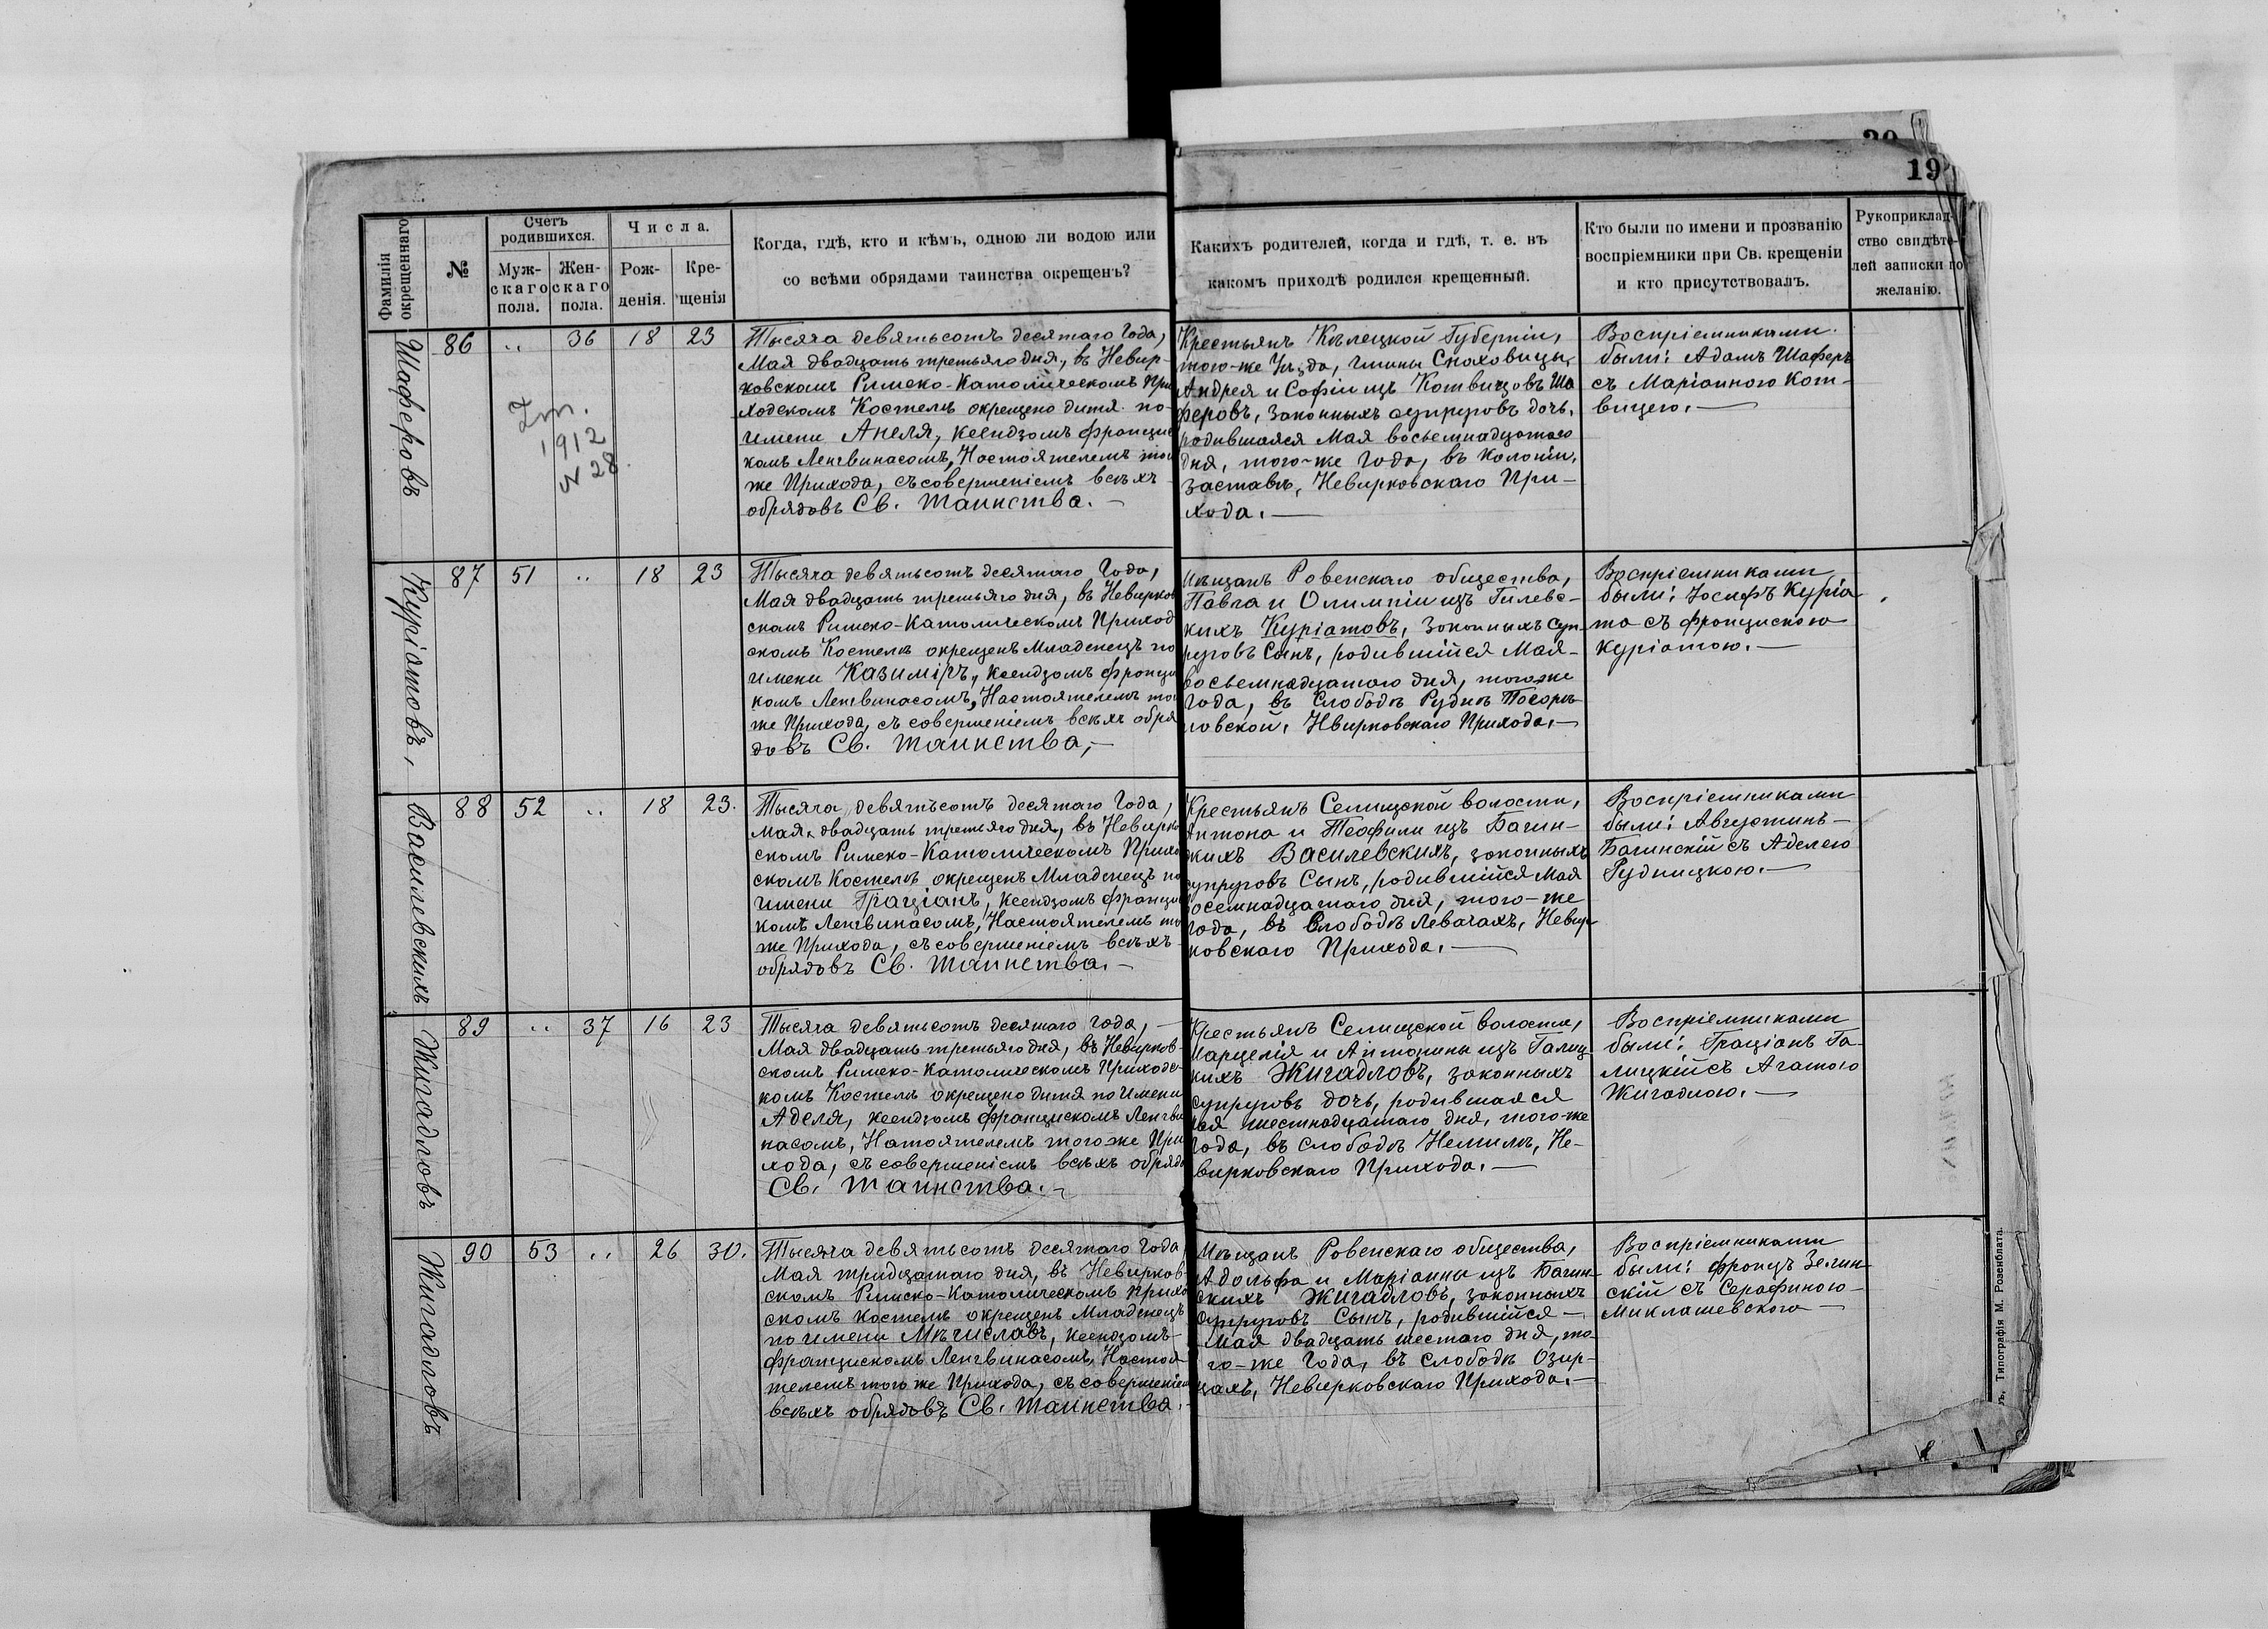 20
19
Фамилія
окрещеннаго
№
Счетъ
родившихся.
Муж-
скаго
пола.
Жен-
скаго
пола.
Числа.
Рож-
денія.
Кре-
щенія
Когда, гдѣ, кто и кѣмъ, одною ли водою или
со всѣми обрядами таинства окрещенъ?
Какихъ родителей, когда и гдѣ, т. е. въ
какомъ приходѣ родился крещенный.
Кто были по имени и прозванію
воспріемники при Св. крещеніи
и кто присутствовалъ.
Рукоприклад-
ство свидѣте-
лей записки по
желанію.
Шаферовъ
86 .. 36 18 23
Zm.
1912
N 28.
Тысяча девятьсотъ десятаго Года,
Мая двадцать третьяго дня, въ Невир-
ковскомъ Римско-Католическомъ При
ходскомъ Костелѣ окрещено дитя по-
имени Анеля, Ксендзомъ Францис
комъ Ленгвинасомъ, Настоятелемъ того
же Прихода, съ совершеніемъ всѣхъ
обрядовъ Св. Таинства.—
Крестьянъ Кѣлецкой Губерніи,
того-же Уѣзда, гмины Снаховицы,
Андрея и Софіи изъ Котвицовъ Ша
феровъ, законныхъ супруговъ дочь,
родившаяся Мая восьемнадцатаго
дня, того-же Года, въ Колоніи,
Заставѣ, Невирковскаго При-
хода.—
Воспріемниками
были: Адамъ Шаферъ
съ Маріанною Кот-
вицею.—
Куріатовъ,
87 51 .. 18 23
Тысяча девятьсотъ десятаго Года,
Мая двадцать третьяго дня, въ Невирков
скомъ Римско-Католическомъ Приход
скомъ Костелѣ окрещенъ Младенецъ по
имени Казиміръ, Ксендзомъ Францис
комъ Ленгвинасомъ, Настоятелемъ того
же Прихода, съ совершеніемъ всѣхъ обря
довъ Св. Таинства,—
Мѣщанъ Ровенскаго общества,
Павла и Олимпіи изъ Гилевс-
кихъ Куріатовъ, Законныхъ суп-
руговъ Сынъ, родившійся Мая-
восьемнадцатаго дня, того-же
Года, въ Слободѣ Руднѣ Погорѣ
ловской, Нвирковскаго Прихода.—
Воспріемниками
были: Іосифъ Куріа-
та съ Францискою
Куріатою.—
Василевскихъ
88 52 .. 18 23.
Тысяча девятьсотъ десятаго Года,
Мая двадцать третьяго дня, въ Невирков
скомъ Римско-Католическомъ Приход
скомъ Костелѣ окрещенъ Младенецъ по
имени Граціанъ, Ксендзомъ Францис
комъ Ленгвинасомъ, Настоятелемъ того
же Прихода, съ совершеніемъ всѣхъ-
обрядовъ Св. Таинства.—
Крестьянъ Селищской волости,
Антона и Теофили изъ Багин-
скихъ Василевскихъ, законныхъ
супруговъ Сынъ, родившійся Мая
восемнадцатаго дня, того-же
Года, въ Слободѣ Левачахъ, Невир-
ковскаго Прихода.—
Воспріемниками
были: Августинъ-
Багинскій съ Аделею
Рудницкою.—
Жигадловъ
89 .. 37 16 23
Тысяча девятьсотъ десятаго Года,—
Мая двадцать третьяго дня, въ Невирков-
скомъ Римско-Католическомъ Приходс-
комъ Костелѣ окрещено дитя по имени
Аделя, Ксендзомъ Францискомъ Ленгви
насомъ, Натоятелемъ того же При
хода, съ совершеніемъ всѣхъ обрядо
Св. Таинства.—
Крестьянъ Селищской волости,
Марцелія и Антонины изъ Галиц-
кихъ Жигадловъ, законныхъ
супруговъ дочь, родившаяся
Мая шестнадцатаго дня, того-же
Года, въ слободѣ Немилѣ, Не-
вирковскаго Прихода.—
Воспріемниками
были: Граціанъ Га-
лицкій съ Агатою
Жигадлою.—
Жигадловъ
90 53 .. 26 30.
Тысяча девятьсотъ десятаго Года
Мая тридцатаго дня, въ Невирков-
скомъ Римско-Католическомъ Приход
скомъ Костелѣ окрещенъ Младенецъ
по имени Мѣчиславъ, Ксендзомъ-
Францискомъ Ленгвинасомъ, Настоя-
телемъ того же Прихода, съ совершеніемъ
всѣхъ обрядовъ Св. Таинства.
Мѣщанъ Ровенскаго общества,
Адольфа и Маріанны изъ Багин-
скихъ Жигадловъ, законныхъ
супруговъ Сынъ, родившійся—
Мая двадцать шестаго дня, то
го-же Года, въ слободѣ Озир-
цахъ, Невирковскаго Прихода.—
Воспріемниками
были: Францъ Зелин-
скій съ Серафиною-
Миклашевскою—
Типографія М. Розенблата.